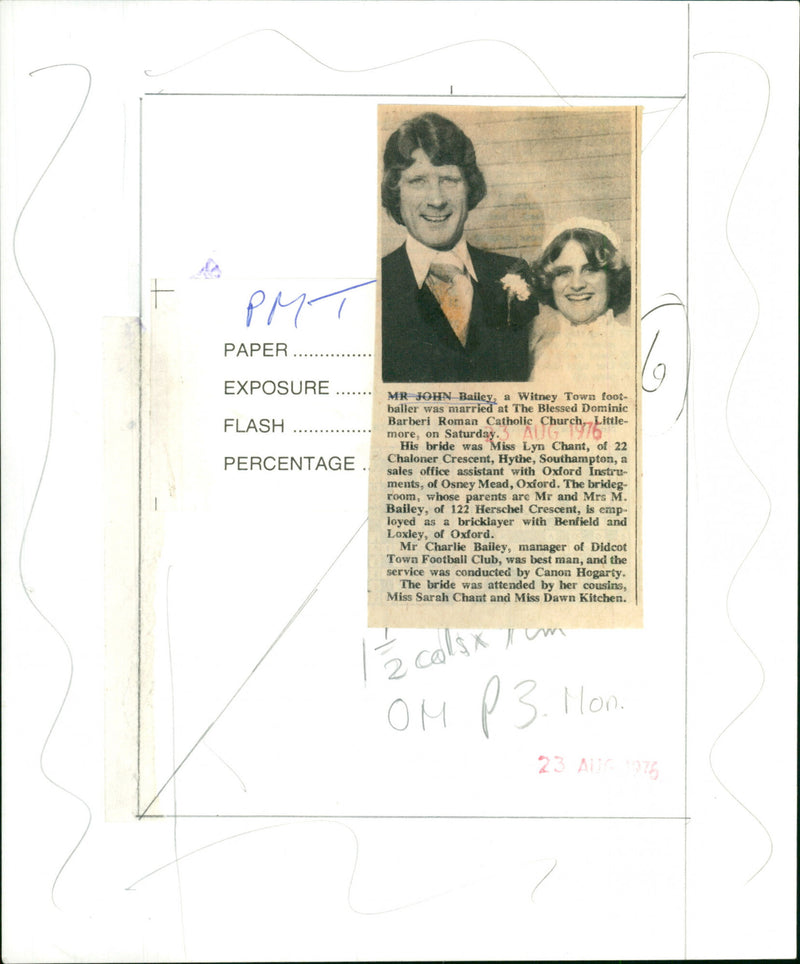 PMT
PAPER ................
EXPOSURE .......
FLASH ................
PERCENTAGE ..
6
MR JOHN Bailey, a Witney Town foot-
baller was married at The Blessed Dominic
Barberi Roman Catholic Church, Little-
more, on Saturday.
23 AUG 1976
His bride was Miss Lyn Chant, of 22
Chaloner Crescent, Hythe, Southampton, a
sales office assistant with Oxford Instru-
ments, of Osney Mead, Oxford. The brideg-
room, whose parents are Mr and Mrs M.
Bailey, of 122 Herschel Crescent, is emp-
loyed as a bricklayer with Benfield and
Loxley, of Oxford.
Mr Charlie Bailey, manager of Didcot
Town Football Club, was best man, and the
service was conducted by Canon Hogarty.
The bride was attended by her cousins,
Miss Sarah Chant and Miss Dawn Kitchen.
1 1/2 cols x cm
OM P3. Mon.
23 AUG 1976